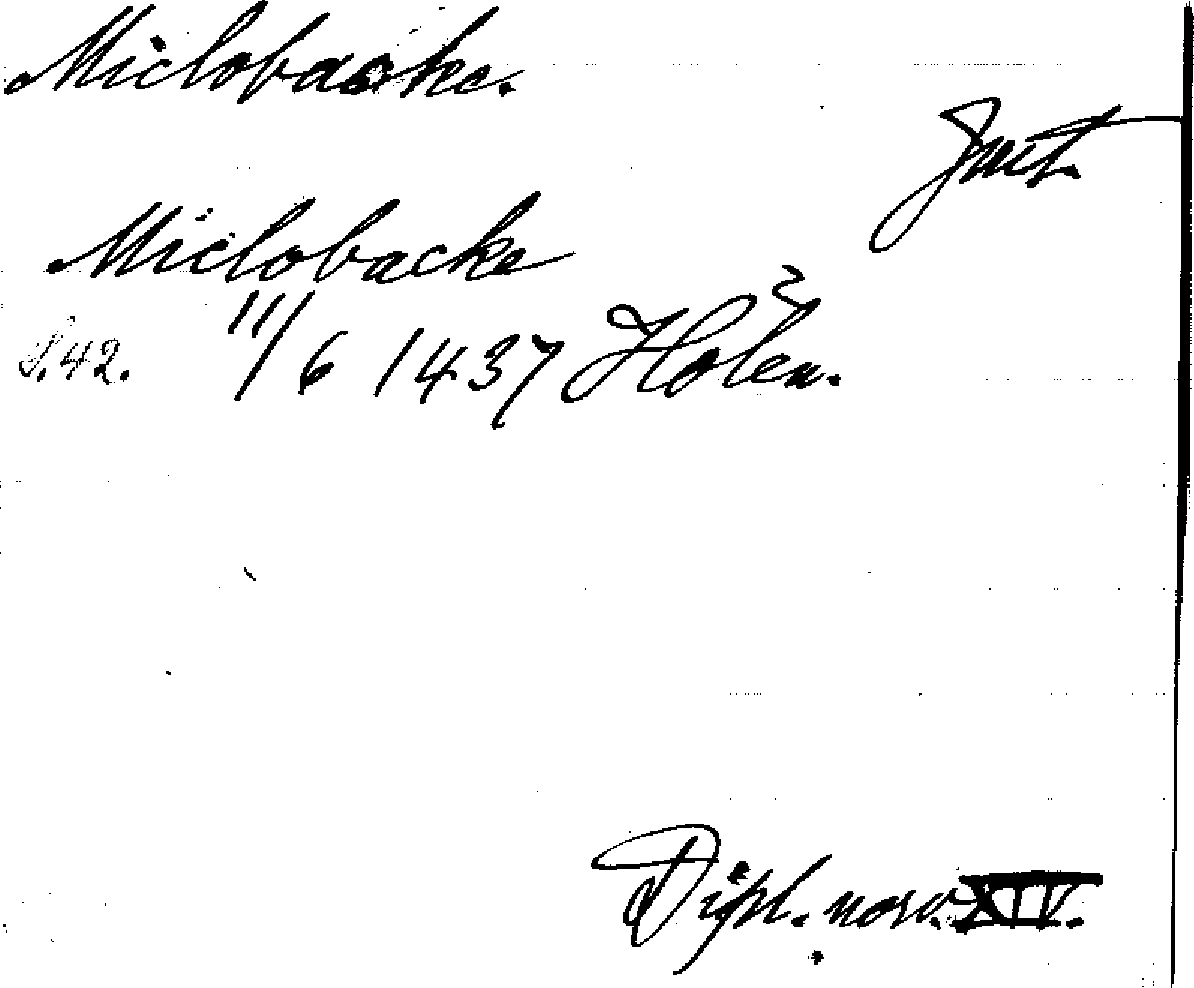 Miclobacke.
Jmt.
Miclobacke
S. 42. 11/6 1437 Hølen.
Dipl. norv. XIV.